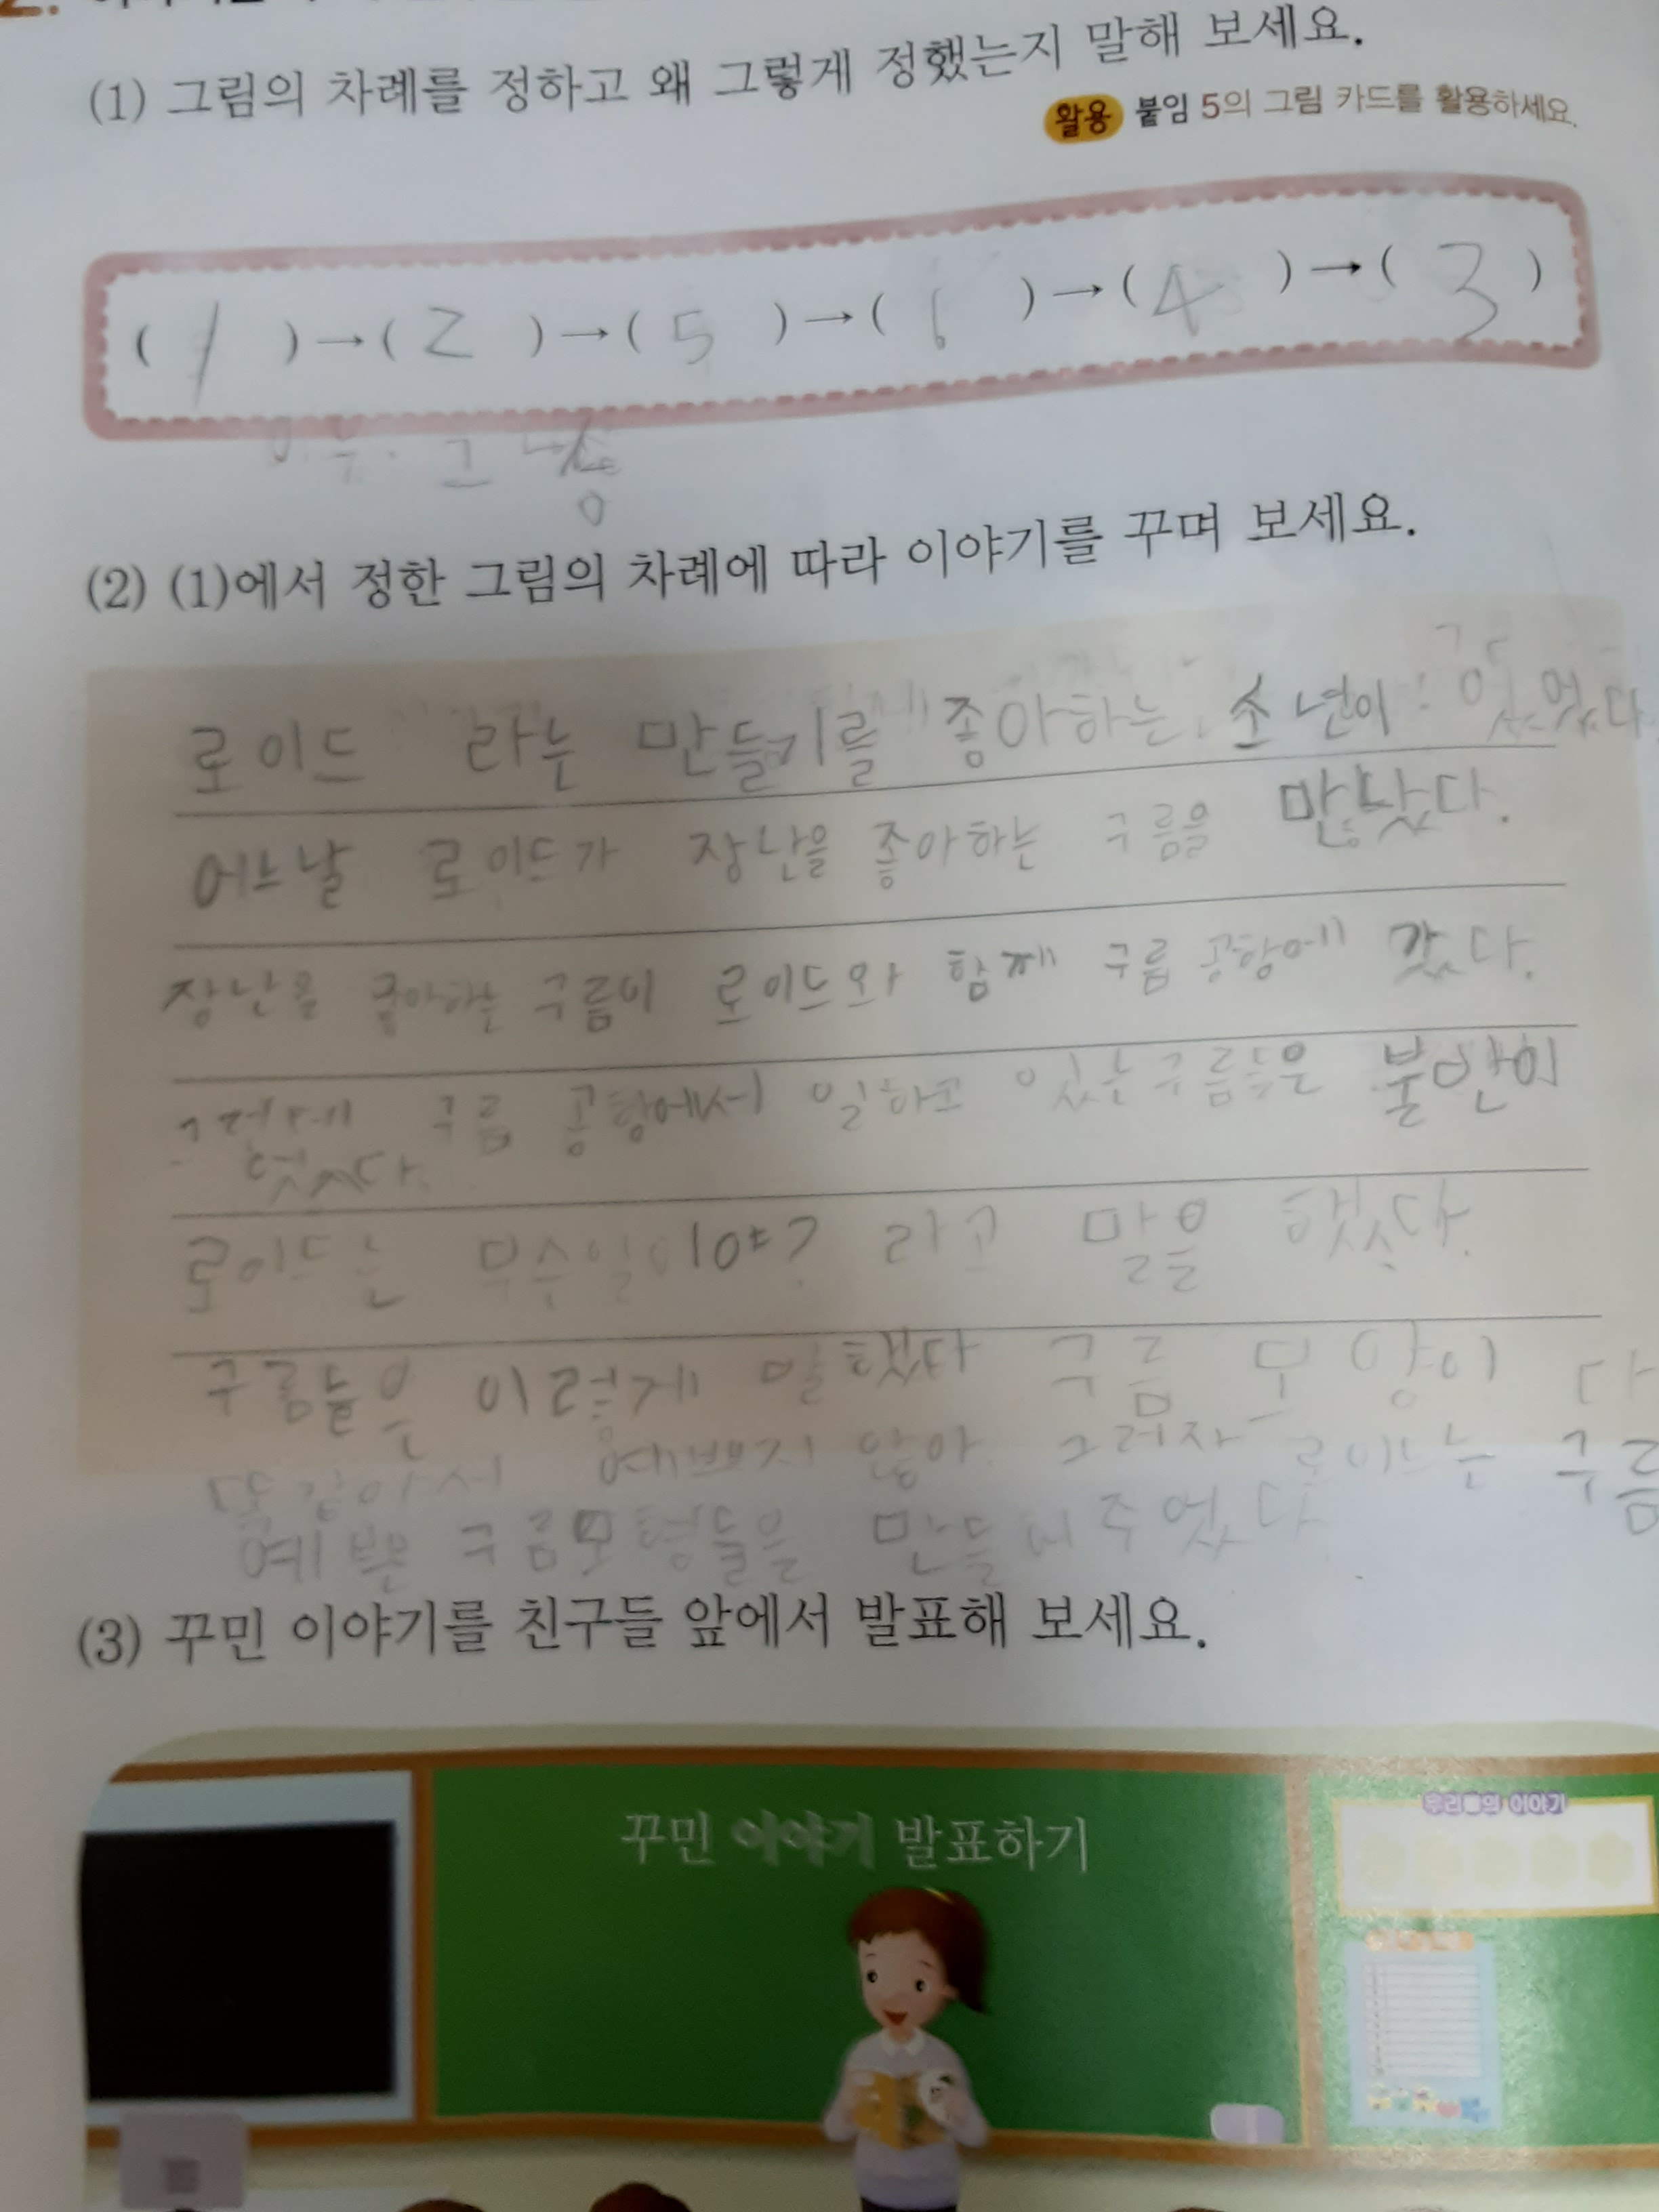 (1) 그림의 차례를 정하고 왜 그렇게 정했는지 말해 보세요.
활용 붙임 5의 그림 카드를 활용하세요.
( 1 )→( 2 )→( 5 )→( 6 )→( 4 )→( 3 )
(2) (1)에서 정한 그림의 차례에 따라 이야기를 꾸며 보세요.
로이드 라는 만들기를 좋아하는 소년이 있었다
어느날 로이드가 장난을 좋아하는 구름을 만났다.
장난을 좋아하는 구름이 로이드와 함께 구름 공항에 갔다.
구름 공항에서 일하고 있는 구름들은 불만이
로이드는 무슨일이야? 라고 말을 했다.
구름들은 이렇게 말했다 구름 모양이 다
똑같아서 예쁘지 않아 그러자 로이드는 구름
예쁜 구름모형들을 만들어주었다
(3) 꾸민 이야기를 친구들 앞에서 발표해 보세요.
꾸민 이야기 발표하기
우리들의 이야기